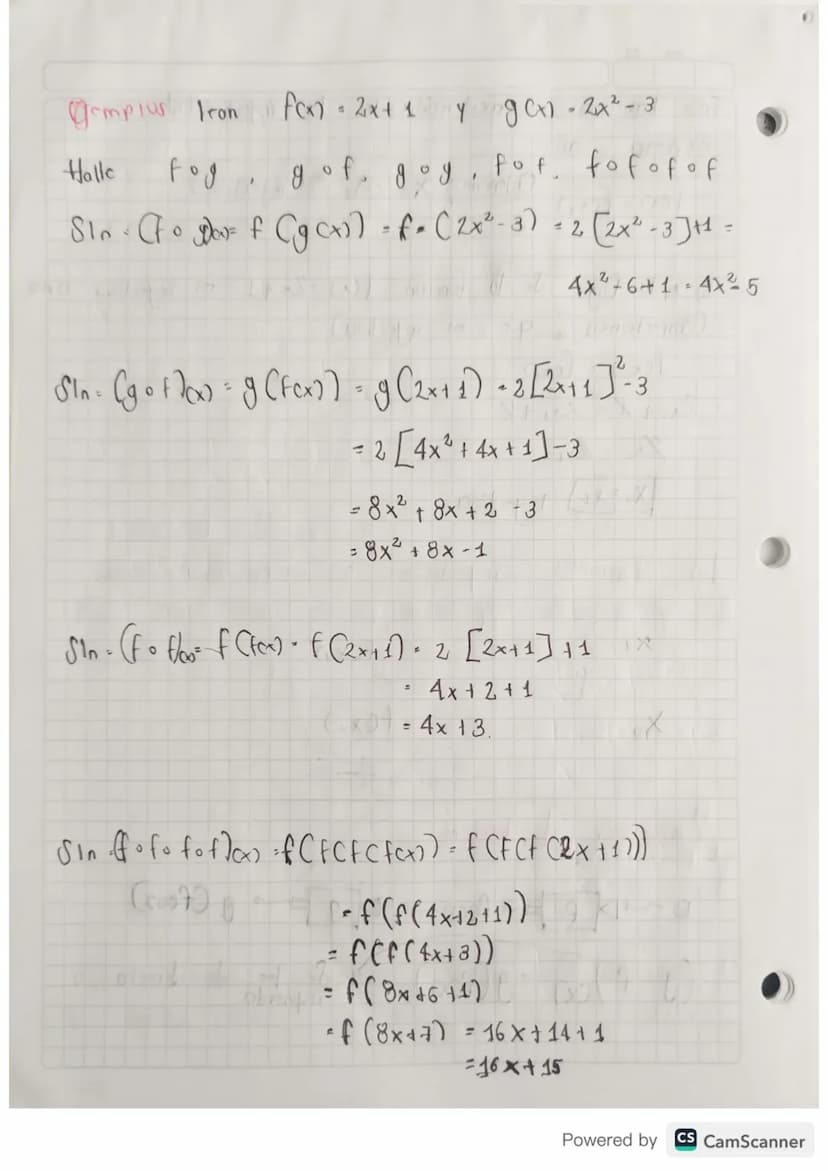 Ejemplos Iron f(x) = 2x+1 y g(x) = 2x² - 3
Halle fog, gof, gog, fof. fofofof
Sln = (fog)(x)= f(g(x)) = f=(2x²-3) = 2[2x²-3]+1 =
4x²-6+1 = 4x²-5
Sln = (gof)(x) = g(f(x)) = g(2x+1) = 2[2x+1]²-3
= 2[4x²+4x+1]-3
= 8x²+8x+2-3
= 8x²+8x-1
Sln = (fof)(x)= f(f(x) = f(2x+1) = 2[2x+1]+1
= 4x+2+1
= 4x+3.
Sln (fofofof)(x) = f(f(f(f(x)) = f(f(f(2x+1)))
= f(f(4x+2+1))
= f(f(4x+3))
= f(8x+6+1)
= f(8x+7) = 16x+14+1
=16x+15
Powered by CS CamScanner